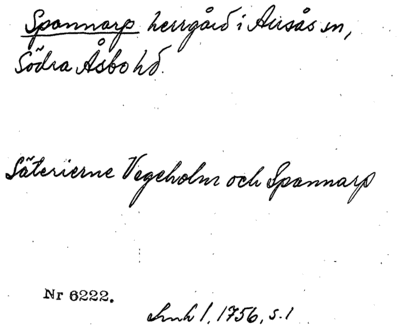 Spannarp herrgård i Ausås sn,
Södra Åsbo hd.
Säterierne Vegeholm och Spannarp
Nr 6222.
1, 1756, s. 1